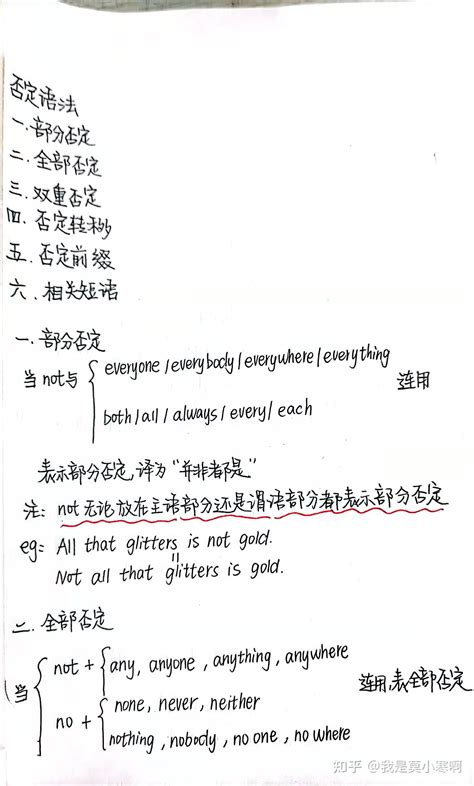 否定语法
一.部分否定
二.全部否定
三.双重否定
四.否定转移
五.否定前缀
六.相关短语
一.部分否定
当not与 everyone/everybody/everywhere/everything 连用
both/all/always/every/each
表示部分否定,译为“并非都是”
注: not无论放在主语部分还是谓语部分都表示部分否定
eg: All that glitters is not gold.
=
Not all that glitters is gold.
二.全部否定
(当 not + any, anyone, anything, anywhere 连用,表全部否定
no + none, never, neither
nothing, nobody, no one, no where
知乎 @我是莫小寒啊